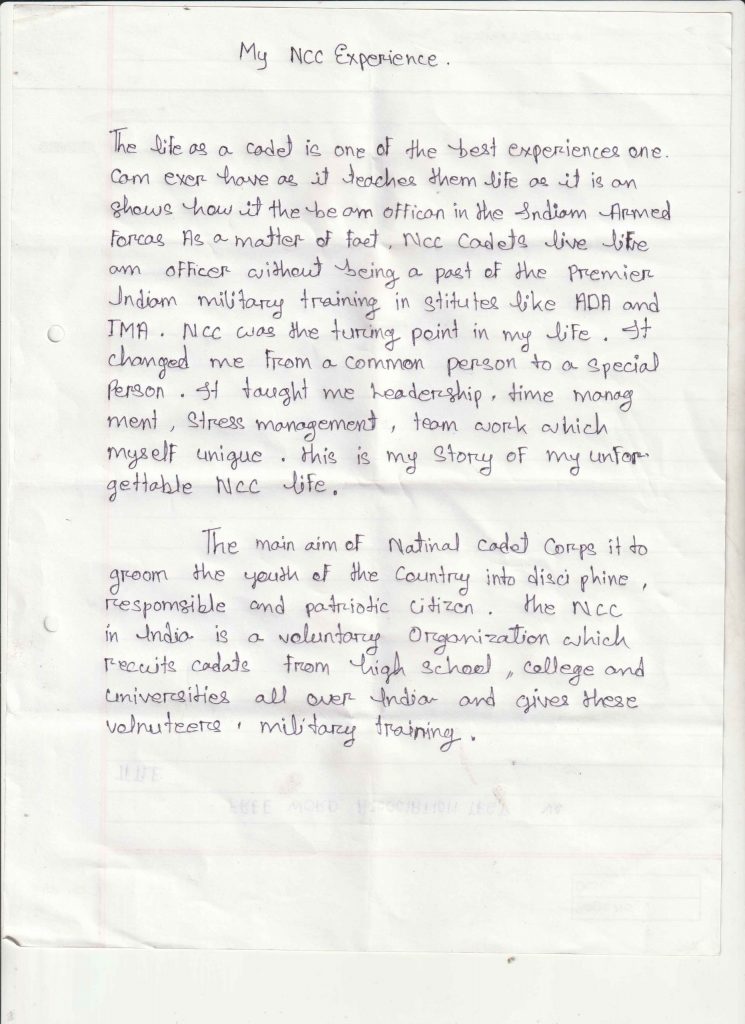 My NCC Experience.
The life as a cadet is one of the best experiences one.
Cam exer have as it teaches them life as it is an
shows how it the be am offican in the Indiam Armed
Forcas As a matter of fact, NCC Cadets live life
am officer without being a past of the Premier
Indiam military training in stitutes like ADA and
IMA. NCC was the turing point in my life. It
changed me from a common person to a special
Person. It taught me Leadership, time manag
ment, Stress management, team work which
myself unique. this is my story of my unfor-
gettable NCC life.
The main aim of Natinal cadet Corps it to
groom the youth of the Country into disci phine,
responmsible and patriotic citizen. the NCC
in India is a voluntary Organization which
recuits cadats from high school, college and
universities all over India and gives these
volnuteers, military training.